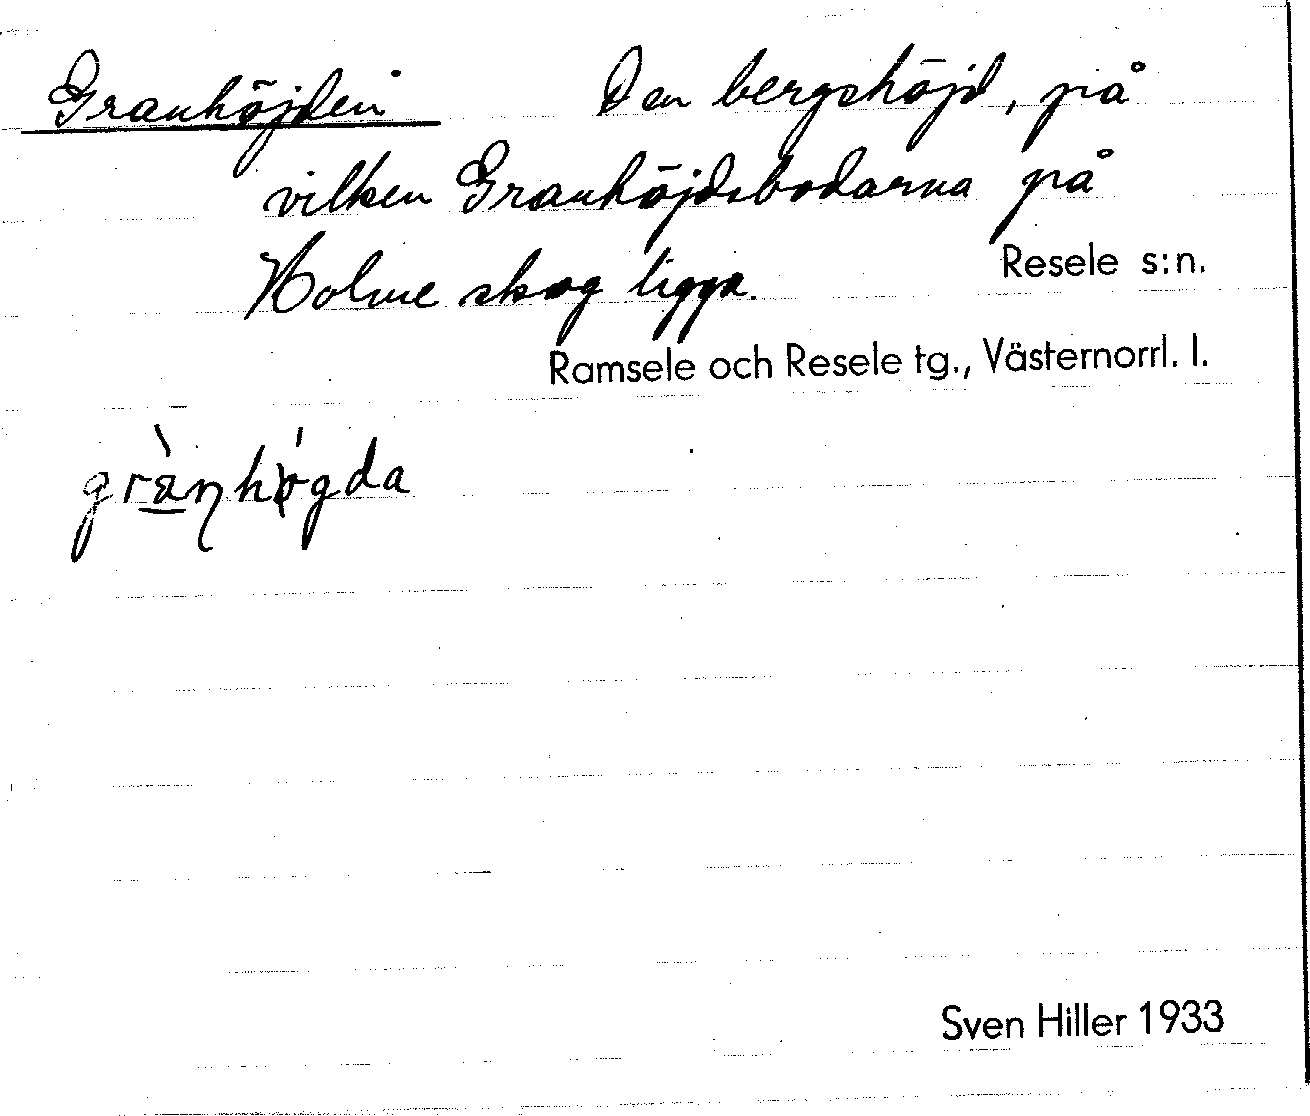 Granhöjden Den bergshöjd, på
vilken Granhöjdsbodarna på
Holme skog ligga.
Resele s:n.
Ramsele och Resele tg., Västernorrl. l.
grànhǿgda
Sven Hiller 1933